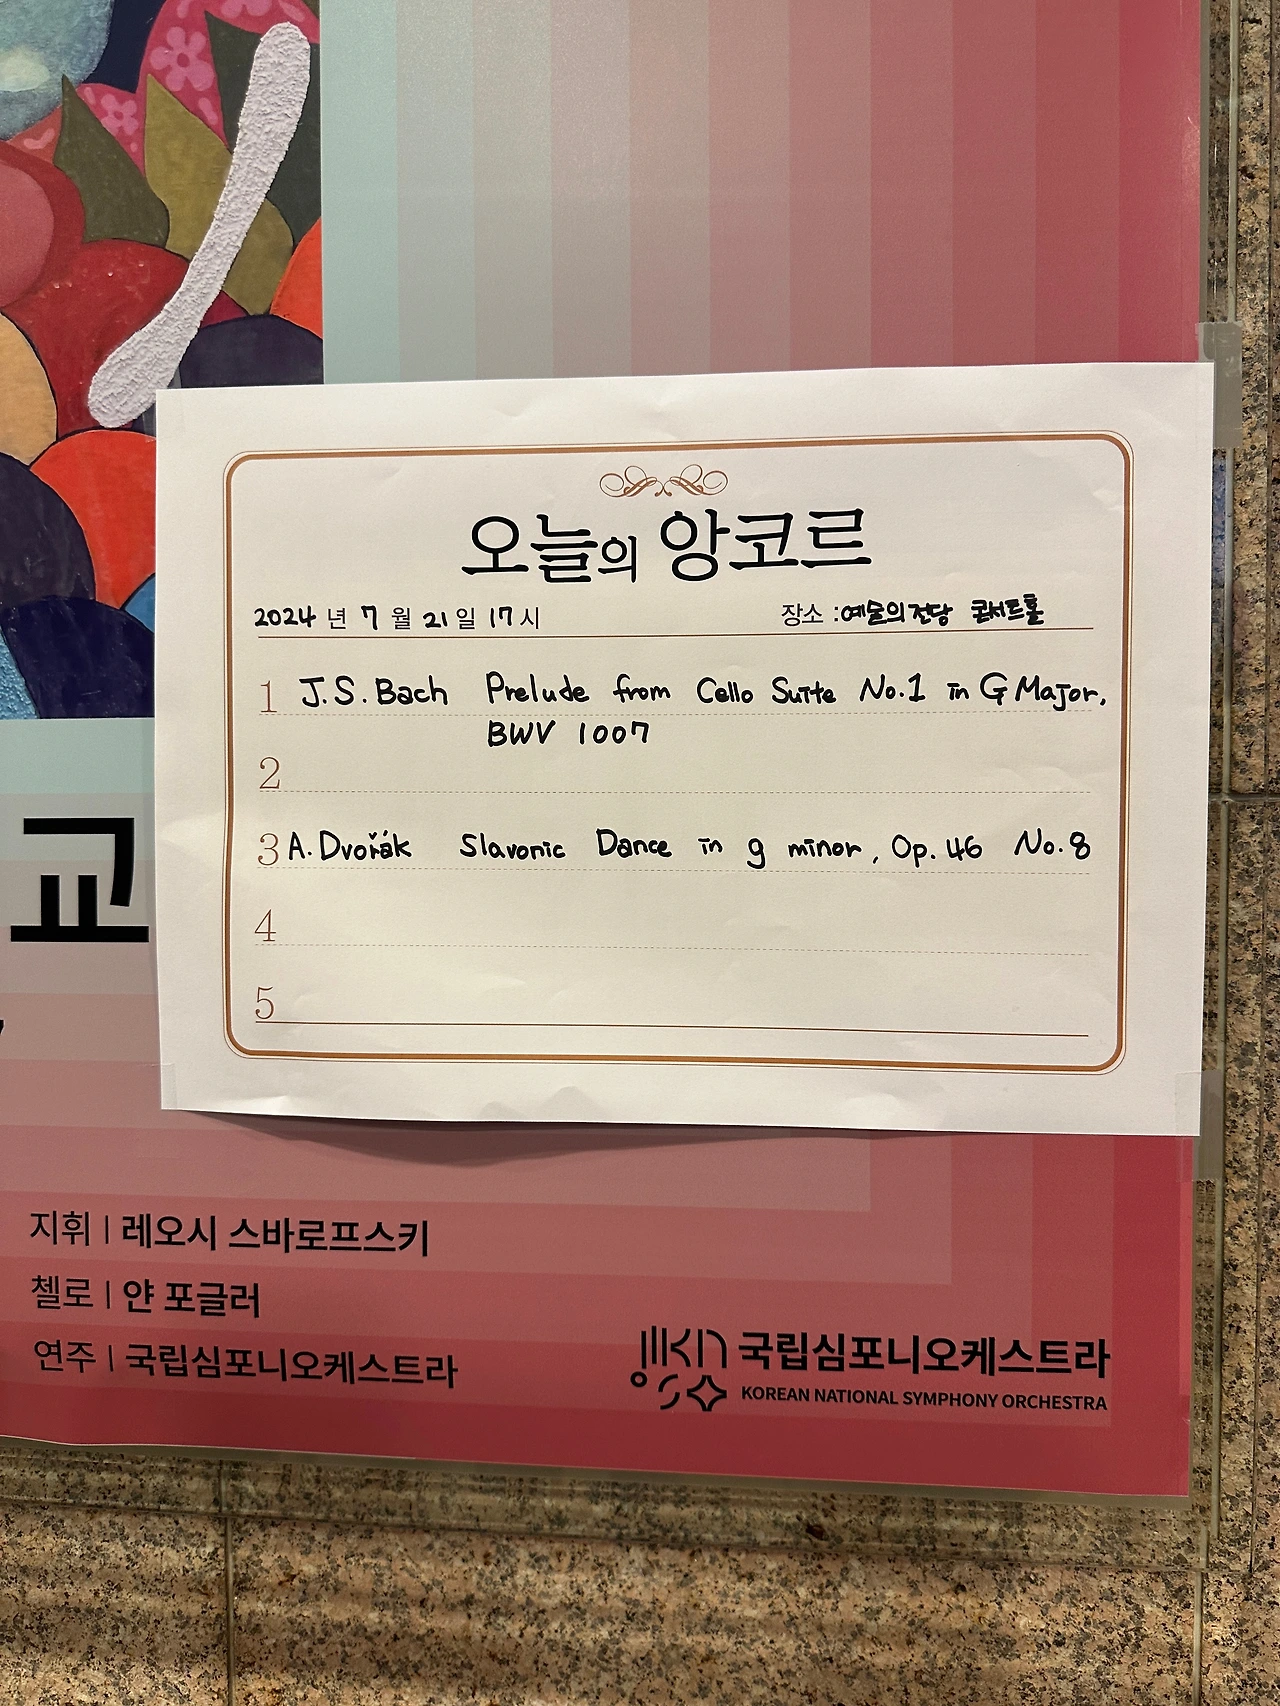 오늘의 앙코르
2024 년 7 월 21 일 17 시 장소 : 예술의전당 콘서트홀
1 J.S.Bach Prelude from Cello Suite No.1 in G Major,
BWV 1007
2
3 A.Dvořák Slavonic Dance in g minor, Op.46 No.8
4
5
교
지휘 | 레오시 스바로프스키
첼로 | 얀 포글러
연주 | 국립심포니오케스트라
국립심포니오케스트라
KOREAN NATIONAL SYMPHONY ORCHESTRA